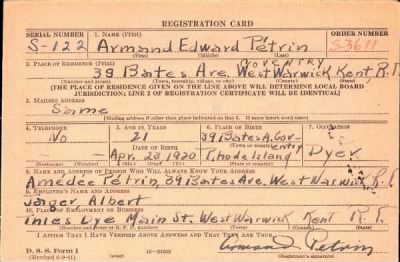 REGISTRATION CARD
SERIAL NUMBER 1. NAME (Print) ORDER NUMBER
S-122 Armand Edward Petrin S3611
(First) (Middle) (Last)
2. PLACE OF RESIDENCE (Print) COVENTRY
39 Bates Ave. West Warwick Kent R.I.
(Number and street) (Town, township, village, or city) (County) (State)
[THE PLACE OF RESIDENCE GIVEN ON THE LINE ABOVE WILL DETERMINE LOCAL BOARD
JURISDICTION; LINE 2 OF REGISTRATION CERTIFICATE WILL BE IDENTICAL]
3. MAILING ADDRESS
Same
[Mailing address if other than place indicated on line 2. If same insert word same]
4. TELEPHONE 5. AGE IN YEARS 6. PLACE OF BIRTH 7. OCCUPATION
No 21 39 Bates A. Cov-
entry
DATE OF BIRTH
Apr. 23 1920 Rhode Island Dyer
8. NAME AND ADDRESS OF PERSON WHO WILL ALWAYS KNOW YOUR ADDRESS
Amedee Petrin, 39 Bates Ave. West Warwick R.I.
9. EMPLOYER'S NAME AND ADDRESS
Albert
10. PLACE OF EMPLOYMENT OR BUSINESS
Dye Main St. West Warwick Kent R.I.
I AFFIRM THAT I HAVE VERIFIED ABOVE ANSWERS AND THAT THEY ARE TRUE.
D. S. S. Form 1
(Revised 6-9-41)
Armand Petrin